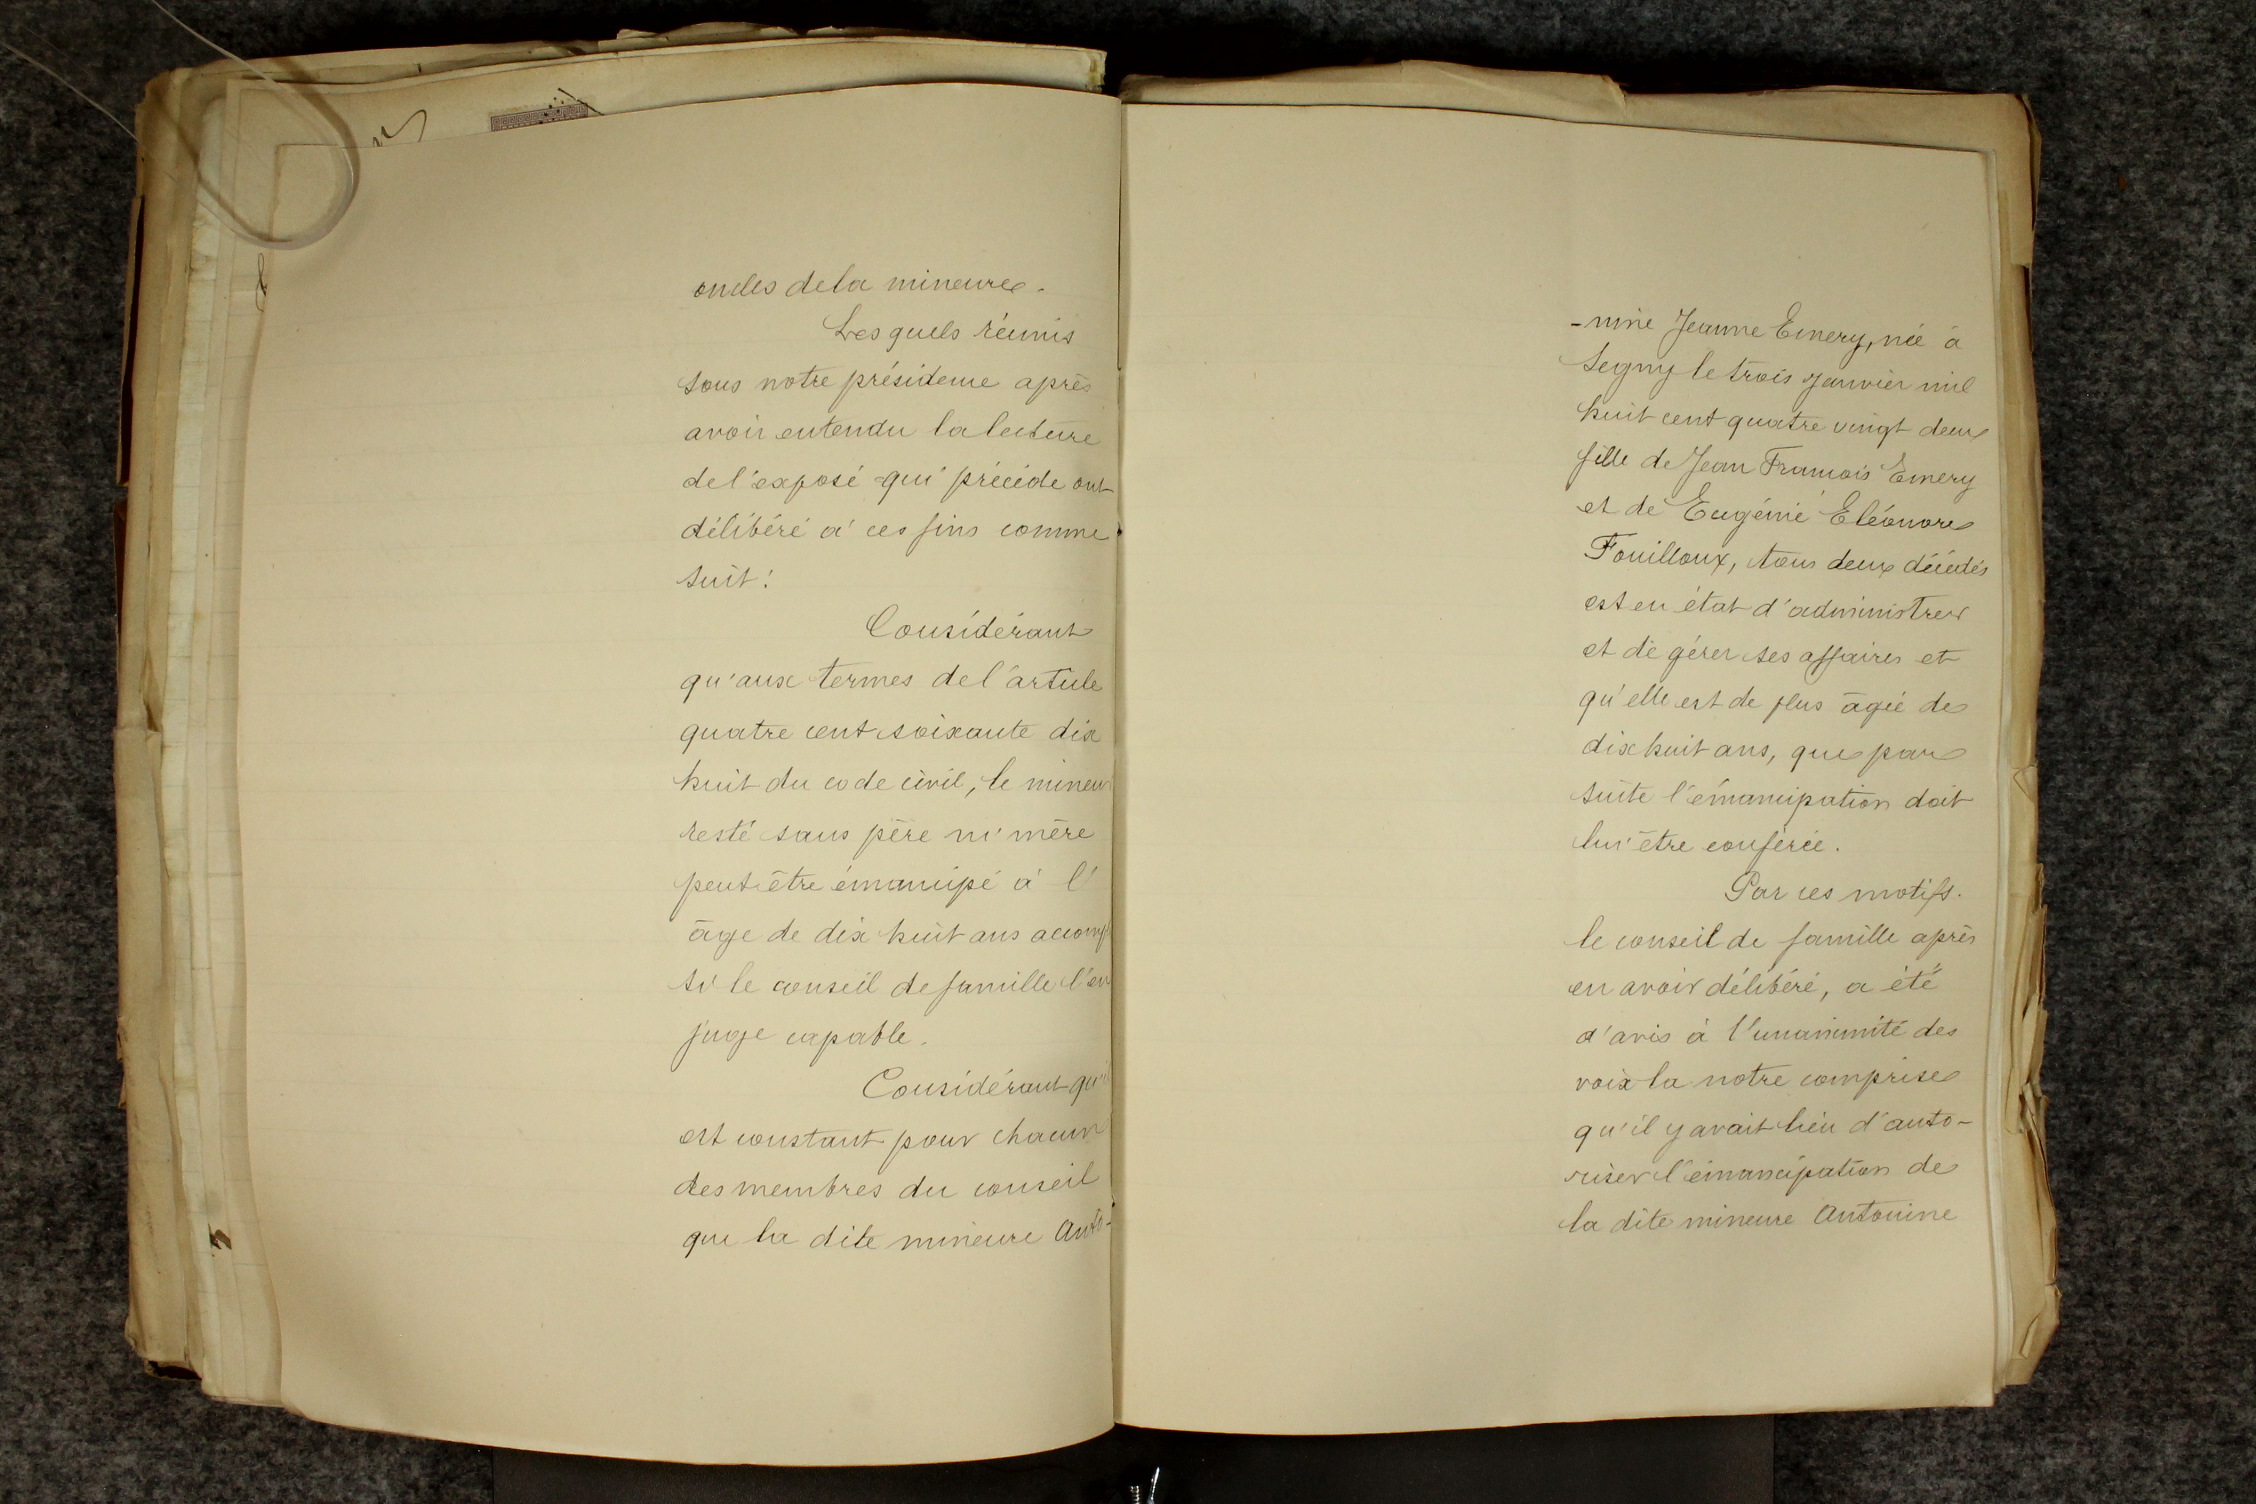 oncles de la mineure.
Lesquels réunis
sous notre présidence après
avoir entendu la lecture
de l'exposé qui précède ont
délibéré à ces fins comme
suit :
Considérant
qu'aux termes de l'article
quatre cent soixante dix
huit du code civil, le mineur
resté sans père ni mère
peut être émancipé à l'
âge de dix huit ans accompl
si le conseil de famille l'en
juge capable.
Considérant qu'il
est constant pour chacun
des membres du conseil
que la dite mineure Anto-
-nine Jeanne Emery, née à
Segny le trois janvier mil
huit cent quatre vingt deux
fille de Jean François Emery
et de Eugénie Eléonore
Fouilloux, tous deux décédés
est en état d'administrer
et de gérer ses affaires et
qu'elle est de plus âgée de
dix huit ans, que par
suite l'émancipation doit
lui être conférée.
Par ces motifs.
le conseil de famille après
en avoir délibéré, a été
d'avis à l'unanimité des
voix la notre comprise
qu'il y avait lieu d'auto-
riser l'émancipation de
la dite mineure Antonine